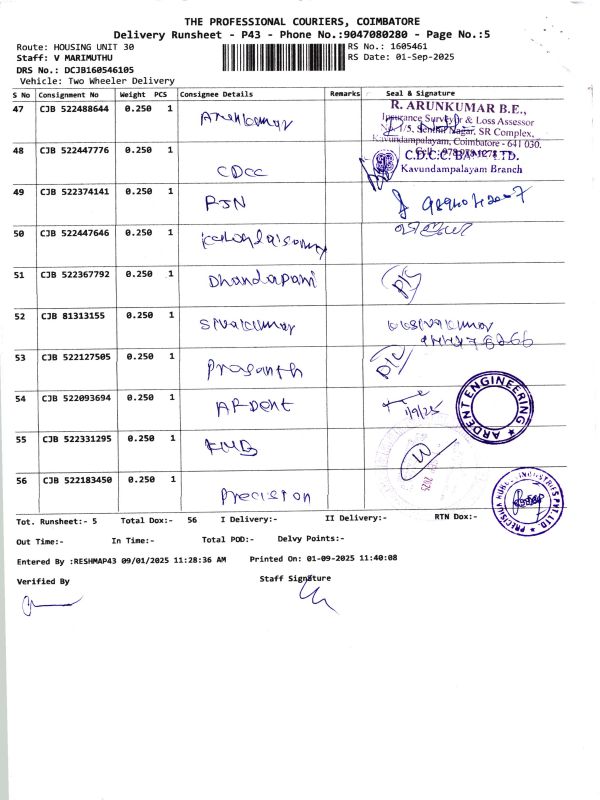 THE PROFESSIONAL COURIERS, COIMBATORE
Delivery Runsheet - P43 - Phone No.:9047080280 - Page No.:5
Route: HOUSING UNIT 30 RS No.: 1605461
Staff: V MARIMUTHU RS Date: 01-Sep-2025
DRS No.: DCJB160546105
Vehicle: Two Wheeler Delivery
S No Consignment No Weight PCS Consignee Details Remarks Seal & Signature
47 CJB 522488644 0.250 1 Arunkumar
R. ARUNKUMAR B.E.,
Insurance Surveyor & Loss Assessor
1/5, Senthil Nagar, SR Complex,
Kavundampalayam, Coimbatore - 641 030.
48 CJB 522447776 0.250 1 CDCC
C.D.C.C. BANK LTD.
Kavundampalayam Branch
49 CJB 522374141 0.250 1 RJN
50 CJB 522447646 0.250 1
51 CJB 522367792 0.250 1 Dhandapani D/C
52 CJB 81313155 0.250 1 Sivakumar
53 CJB 522127505 0.250 1 Prasanth D/C
54 CJB 522093694 0.250 1 ARDENT 1/9/25
ARDENT ENGINEERING
55 CJB 522331295 0.250 1 KMB
56 CJB 522183450 0.250 1 Precision
Tot. Runsheet:- 5 Total Dox:- 56 I Delivery:- II Delivery:- RTN Dox:-
Out Time:- In Time:- Total POD:- Delvy Points:-
Entered By :RESHMAP43 09/01/2025 11:28:36 AM Printed On: 01-09-2025 11:40:08
Verified By Staff Signature